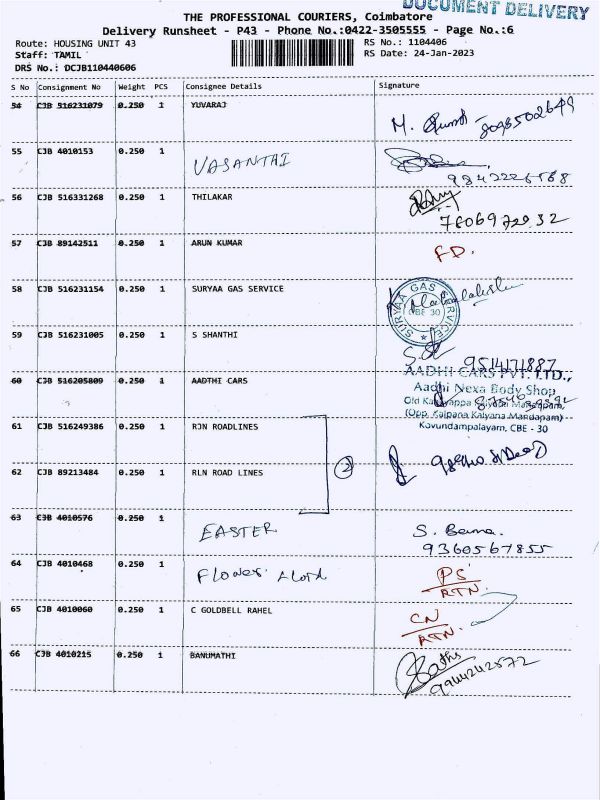 DOCUMENT DELIVERY
THE PROFESSIONAL COURIERS, Coimbatore
Delivery Runsheet - P43 - Phone No.:0422-3505555 - Page No.:6
Route: HOUSING UNIT 43
RS No.: 1104406
Staff: TAMIL
RS Date: 24-Jan-2023
DRS No.: DCJB110440606
S No Consignment No Weight PCS Consignee Details Signature
54 CJB 516231079 0.250 1 YUVARAJ
M.
55 CJB 4010153 0.250 1 VASANTHI
56 CJB 516331268 0.250 1 THILAKAR
57 CJB 89142511 0.250 1 ARUN KUMAR FD.
58 CJB 516231154 0.250 1 SURYAA GAS SERVICE
SURYAA GAS SERVICE
CBE 30
59 CJB 516231005 0.250 1 S SHANTHI
9514171887
60 CJB 516205809 0.250 1 AADTHI CARS
AADHI CARS PVT. LTD.,
Aadhi Nexa Body Shop
(Opp. Kalpana Kalyana Mandapam)
Kavundampalayam, CBE - 30
61 CJB 516249386 0.250 1 RJN ROADLINES
2
62 CJB 89213484 0.250 1 RLN ROAD LINES
63 CJB 4010576 0.250 1 EASTER S. Bema.
9360567855
64 CJB 4010468 0.250 1 Flower PS
RTN.
65 CJB 4010060 0.250 1 C GOLDBELL RAHEL CN
RTN.
66 CJB 4010215 0.250 1 BANUMATHI
9944242572